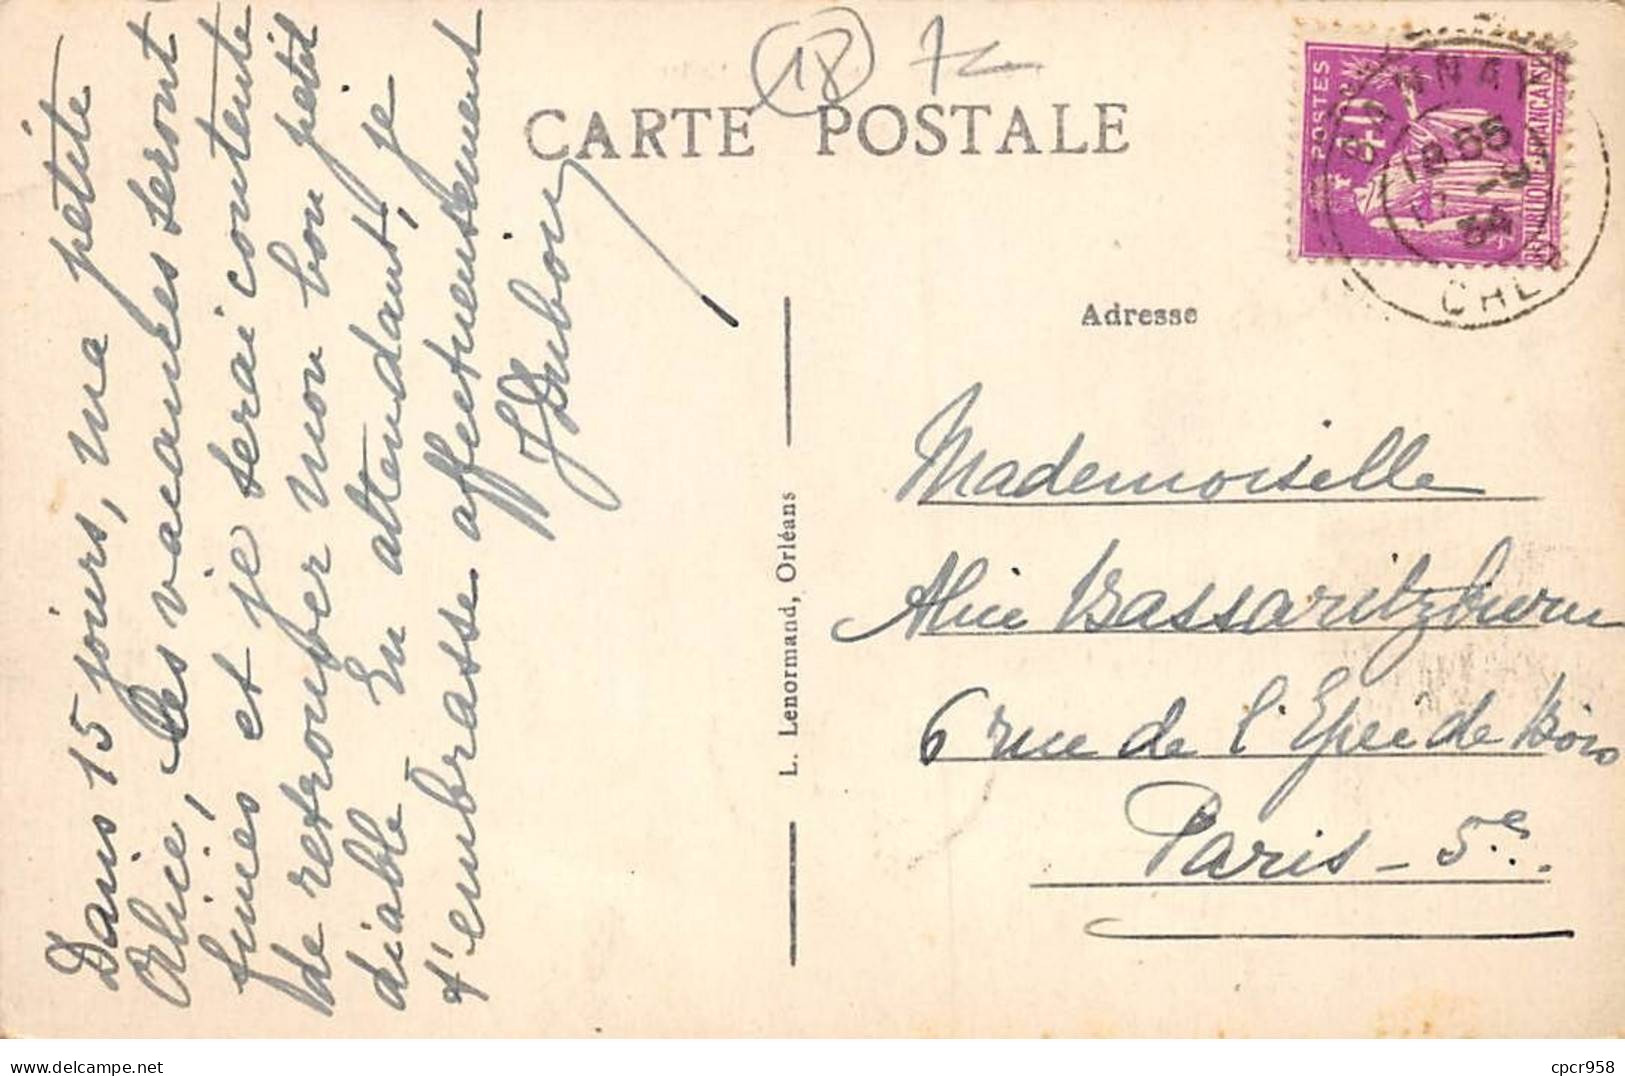 18
CARTE POSTALE
POSTES
40
RÉPUBLIQUE FRANÇAISE
BANNAY
18 55
-9
34
CHER
Adresse
Dans 15 jours, ma petite
Alice, les vacances seront
finies et je serai contente
de retrouver mon bon petit
diable. En attendant, je
t'embrasse affectueusement
J Dubourg
L. Lenormand, Orléans
Mademoiselle
Alice
6 rue de l'Epée de Bois
Paris - 5e.
cpcr958